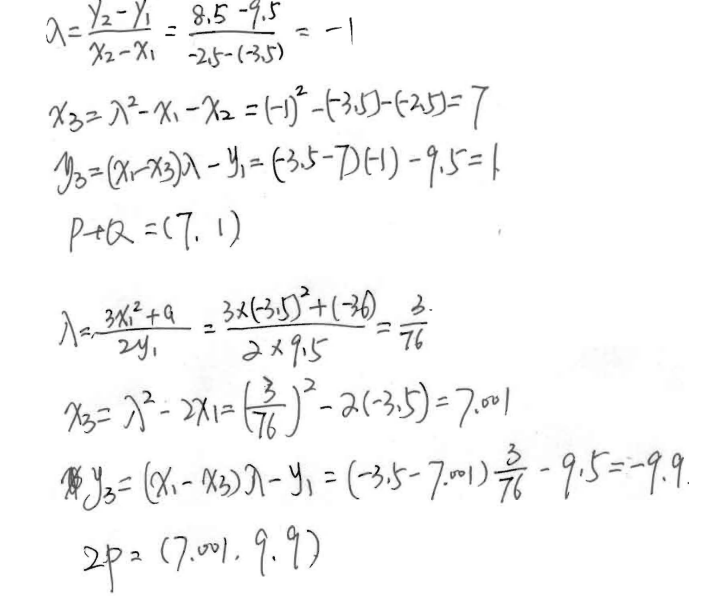 λ = (y₂-y₁)/(x₂-x₁) = (8.5-9.5)/(-2.5-(-3.5)) = -1
x₃ = λ²-x₁-x₂ = (-1)²-(-3.5)-(-2.5) = 7
y₃ = (x₁-x₃)λ-y₁ = (-3.5-7)(-1)-9.5 = 1
P+Q = (7, 1)
λ = (3x₁²+a)/(2y₁) = (3×(-3.5)²+(-36))/(2×9.5) = 3/76
x₃ = λ²-2x₁ = (3/76)²-2(-3.5) = 7.001
y₃ = (x₁-x₃)λ-y₁ = (-3.5-7.001)3/76-9.5 = -9.9
2P = (7.001, 9.9)